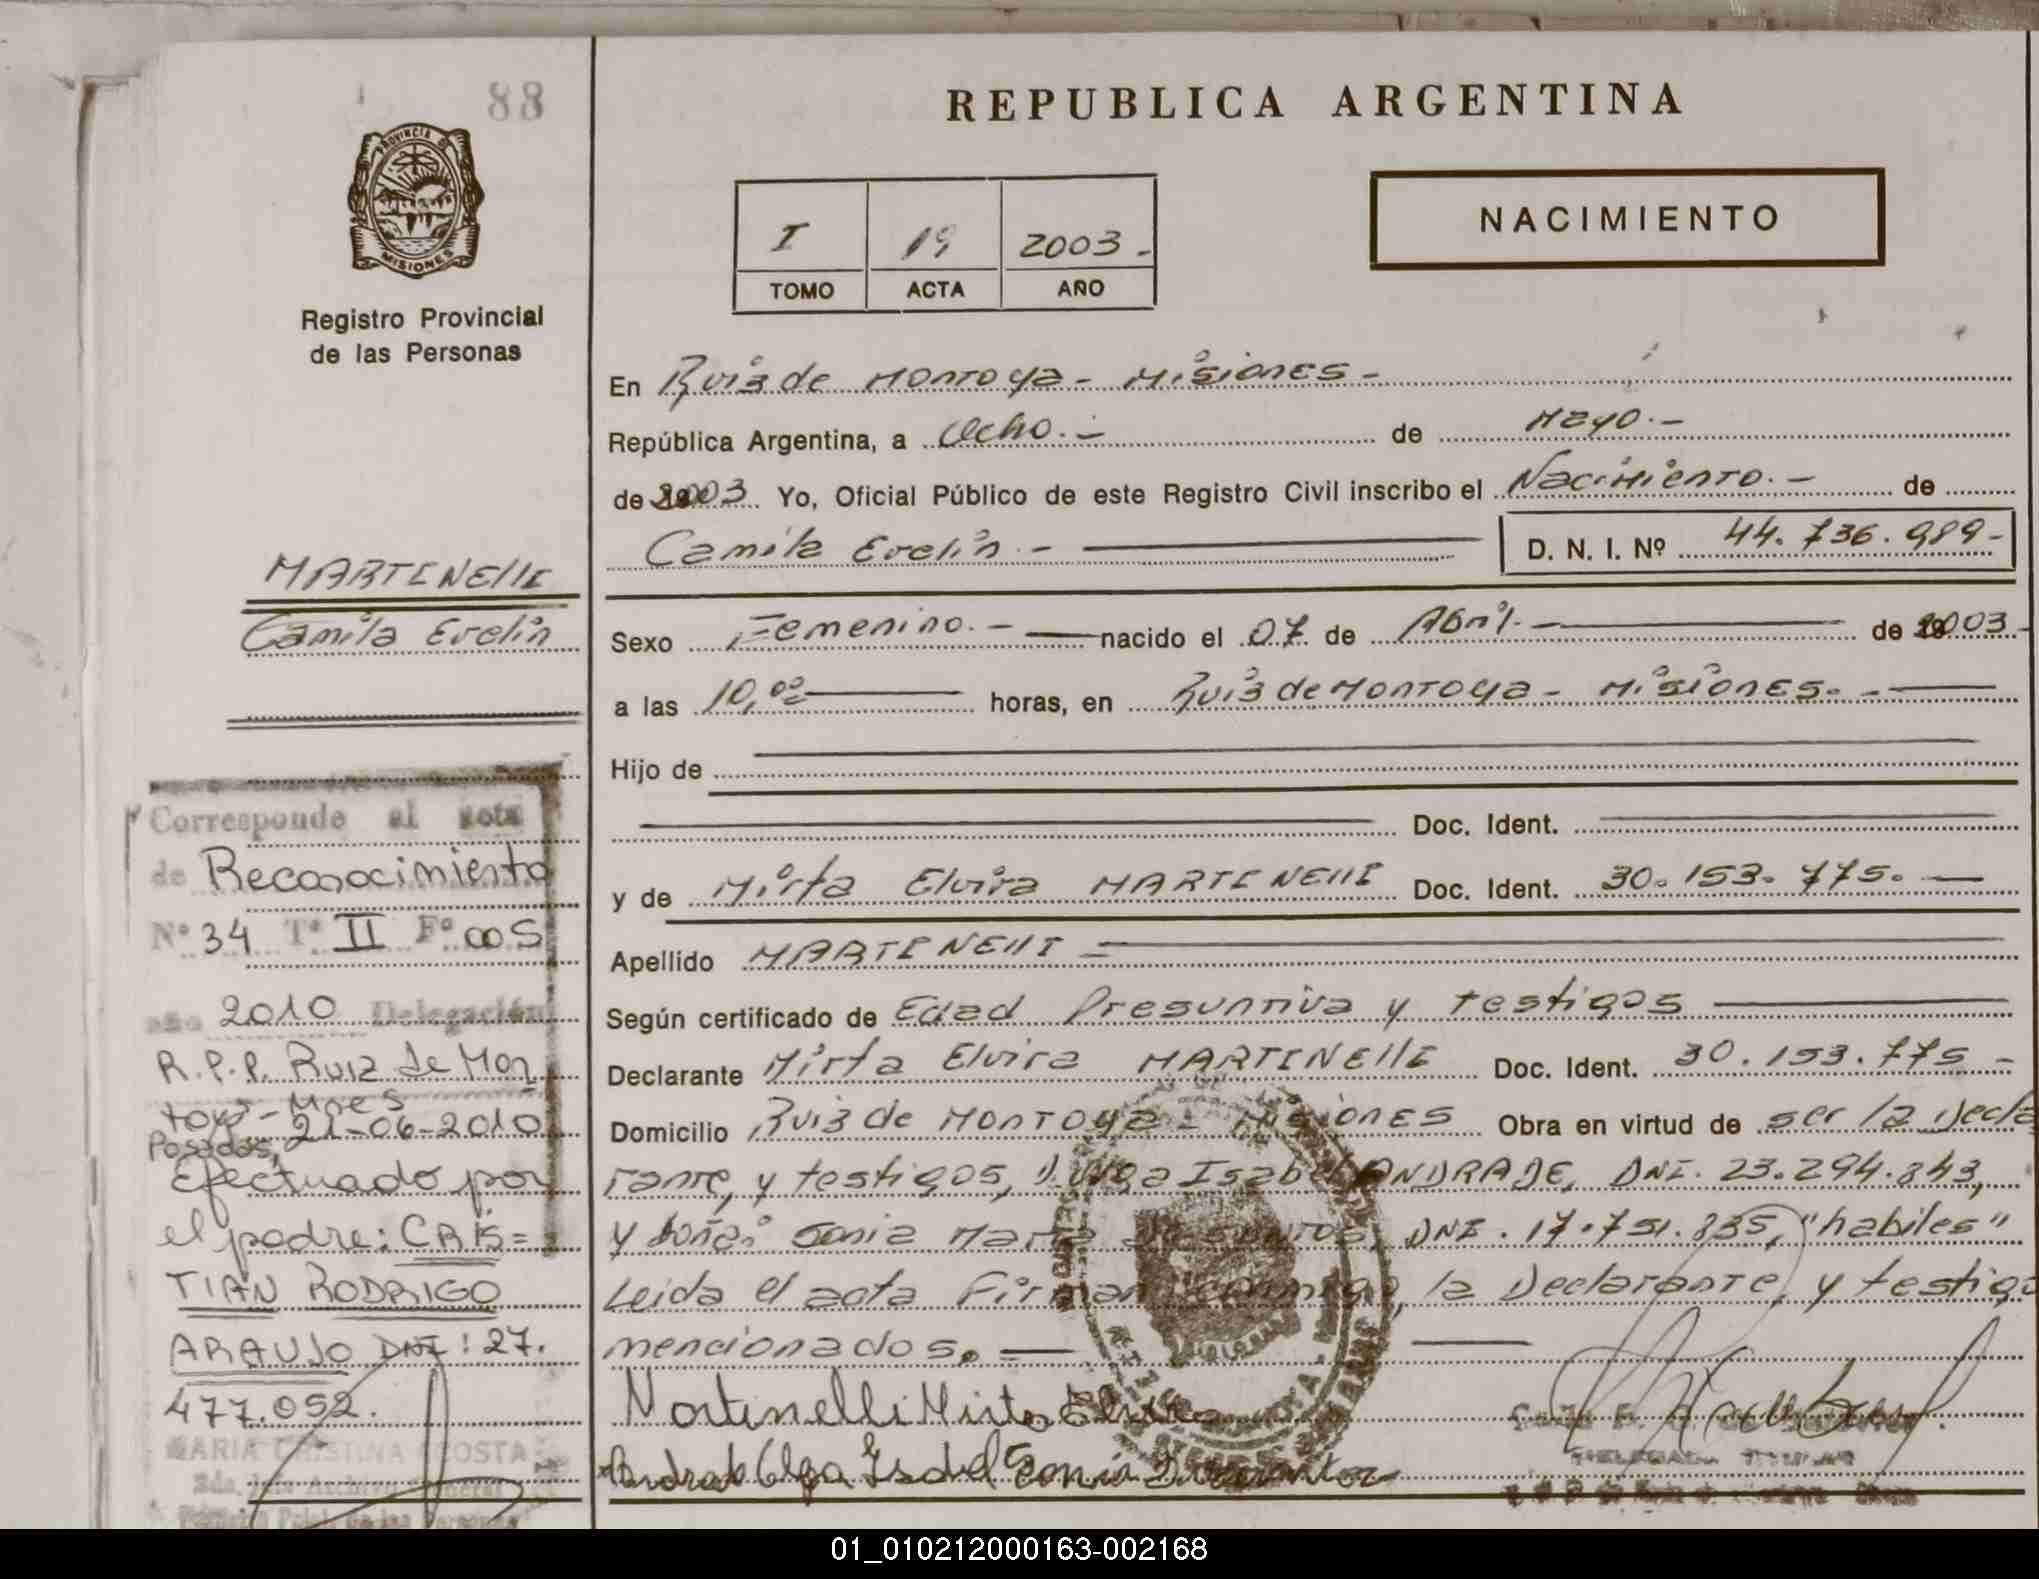 88
PROVINCIA DE
MISIONES
Registro Provincial
de las Personas
MARTINELLI
Camila Evelin
Corresponde al acta
de Reconocimiento
Nº 34 Tº II Fº 005
año 2010 Delegación
R.P.P. Ruiz de Mon
toya - Mnes
Posadas, 21-06-2010
Efectuado por
el padre: CRIS=
TIAN RODRIGO
ARAUJO DNI: 27.
477.052.
MARIA CRISTINA ACOSTA
REPUBLICA ARGENTINA
NACIMIENTO
I 19 2003.-
TOMO ACTA AÑO
En Ruiz de Montoya - Misiones -
República Argentina, a Ocho.- de Mayo.-
de 2003 Yo, Oficial Público de este Registro Civil inscribo el Nacimiento.- de
Camila Evelin.- D. N. I. Nº 44.736.989-
Sexo Femenino.- nacido el 07 de Abril.- de 2003.-
a las 10,00 horas, en Ruiz de Montoya - Misiones.-
Hijo de
Doc. Ident.
y de Mirta Elvira MARTINELLI Doc. Ident. 30.153.775.-
Apellido MARTINELLI =
Según certificado de Edad Presuntiva y testigos
Declarante Mirta Elvira MARTINELLI Doc. Ident. 30.153.775 -
Domicilio Ruiz de Montoya - Misiones Obra en virtud de ser la Decla
rante, y testigos, Olga Isabel ANDRADE, DNI. 23.294.843,
y doña: Sonia DNI. 17.751.835, "habiles"
Leida el acta Firman conmigo, la Declarante, y testigo
mencionados.-
Martinelli Mirta Elvira
Andrade Olga Isabel Sonia
01_010212000163-002168